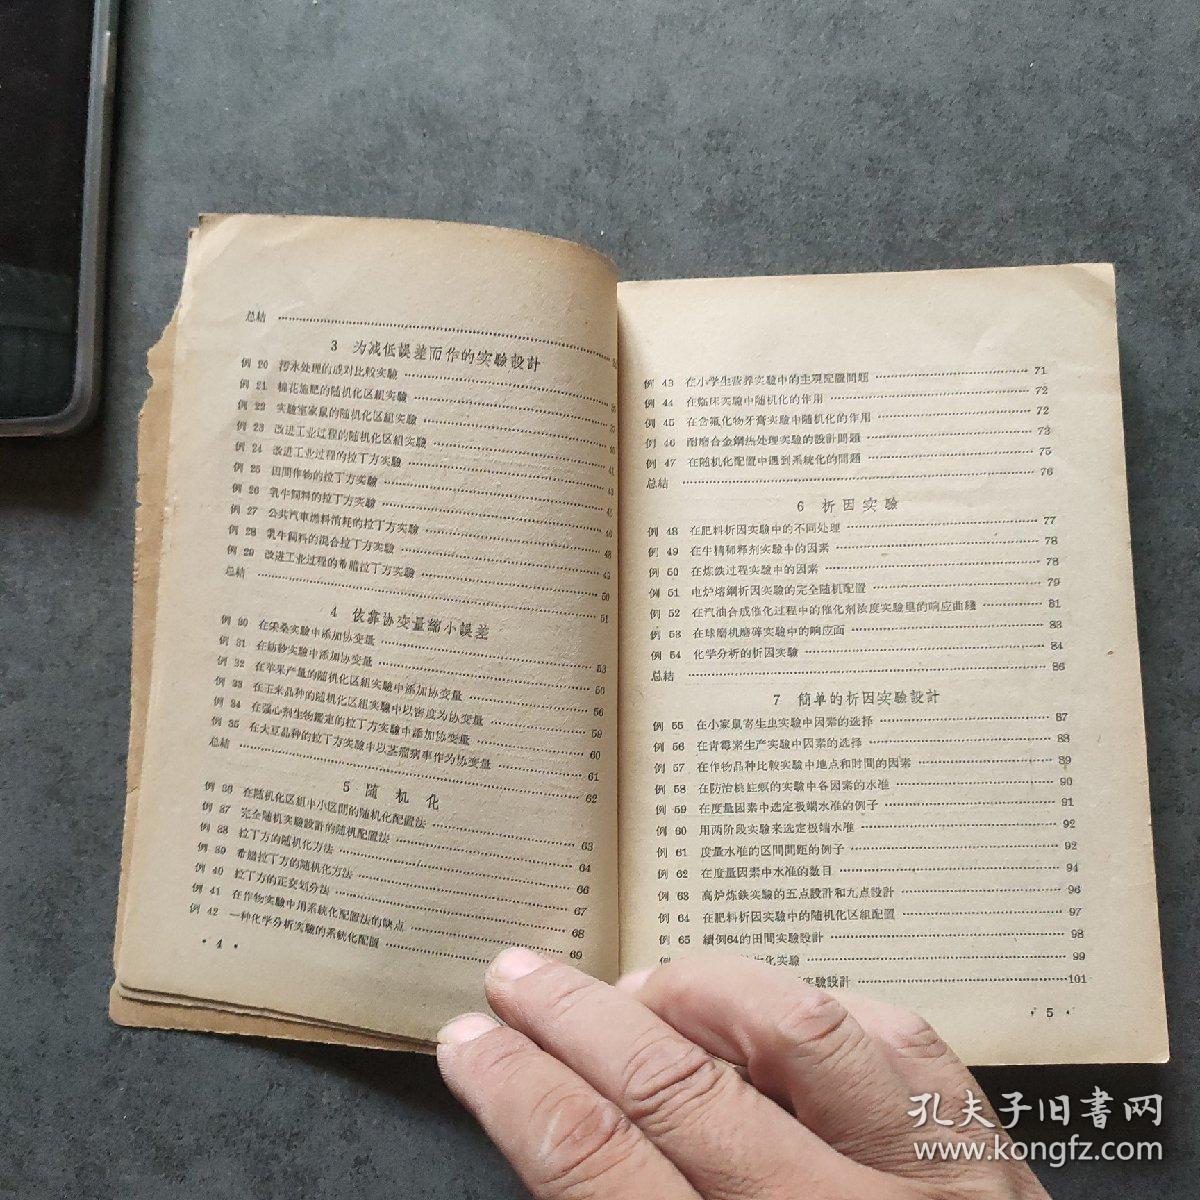 总結
3 为减低誤差而作的实驗設計
例 20 污水处理的成对比較实驗
例 21 棉花施肥的随机化区組实驗
例 22 实驗室家鼠的随机化区組实驗
例 23 改进工业过程的随机化区組实驗
例 24 改进工业过程的拉丁方实驗 41
例 25 田間作物的拉丁方实驗 43
例 26 乳牛飼料的拉丁方实驗
例 27 公共汽車燃料消耗的拉丁方实驗 46
例 28 乳牛飼料的混合拉丁方实驗 48
例 29 改进工业过程的希腊拉丁方实驗
总結 50
51
4 依靠协变量縮小誤差
例 30 在采桑实驗中添加协变量 53
例 31 在紡紗实驗中添加协变量
例 32 在苹果产量的随机化区組实驗中添加协变量 56
例 33 在玉米品种的随机化区組实驗中以密度为协变量 59
例 34 在强心剂生物鑑定的拉丁方实驗中添加协变量 60
例 35 在大豆品种的拉丁方实驗中以莖瘤病率作为协变量 61
总結 62
5 随机化
例 36 在随机化区組中小区間的随机化配置法 63
例 37 完全随机实驗設計的随机配置法 64
例 38 拉丁方的随机化方法 66
例 39 希腊拉丁方的随机化方法 67
例 40 拉丁方的正交划分法 68
例 41 在作物实驗中用系統化配置法的缺点
例 42 一种化学分析实驗的系統化配置 69
· 4 ·
例 43 在小学生营养实驗中的主观配置問題 71
例 44 在临床实驗中随机化的作用 72
例 45 在含氟化物牙膏实驗中随机化的作用 72
例 46 耐磨合金鋼热处理实驗的設計問題 73
例 47 在随机化配置中遇到系統化的問題 75
总結 76
6 析因实驗
例 48 在肥料析因实驗中的不同处理 77
例 49 在牛精稀釋剂实驗中的因素 78
例 50 在炼鉄过程实驗中的因素 78
例 51 电炉熔鋼析因实驗的完全随机配置 79
例 52 在汽油合成催化过程中的催化剂浓度实驗里的响应曲綫 81
例 53 在球磨机磨碎实驗中的响应面 83
例 54 化学分析的析因实驗 84
总結 86
7 簡单的析因实驗設計
例 55 在小家鼠寄生虫实驗中因素的选择 87
例 56 在青霉素生产实驗中因素的选择 88
例 57 在作物品种比較实驗中地点和时間的因素 89
例 58 在防治桃蚜螟的实驗中各因素的水准 90
例 59 在度量因素中选定极端水准的例子 91
例 60 用两阶段实驗来选定极端水准 92
例 61 度量水准的区間間距的例子 92
例 62 在度量因素中水准的数目 94
例 63 高炉炼鉄实驗的五点設計和九点設計 96
例 64 在肥料析因实驗中的随机化区組配置 97
例 65 續例64的田間实驗設計 98
化实驗 99
实驗設計 101
· 5 ·
孔夫子旧書网
www.kongfz.com